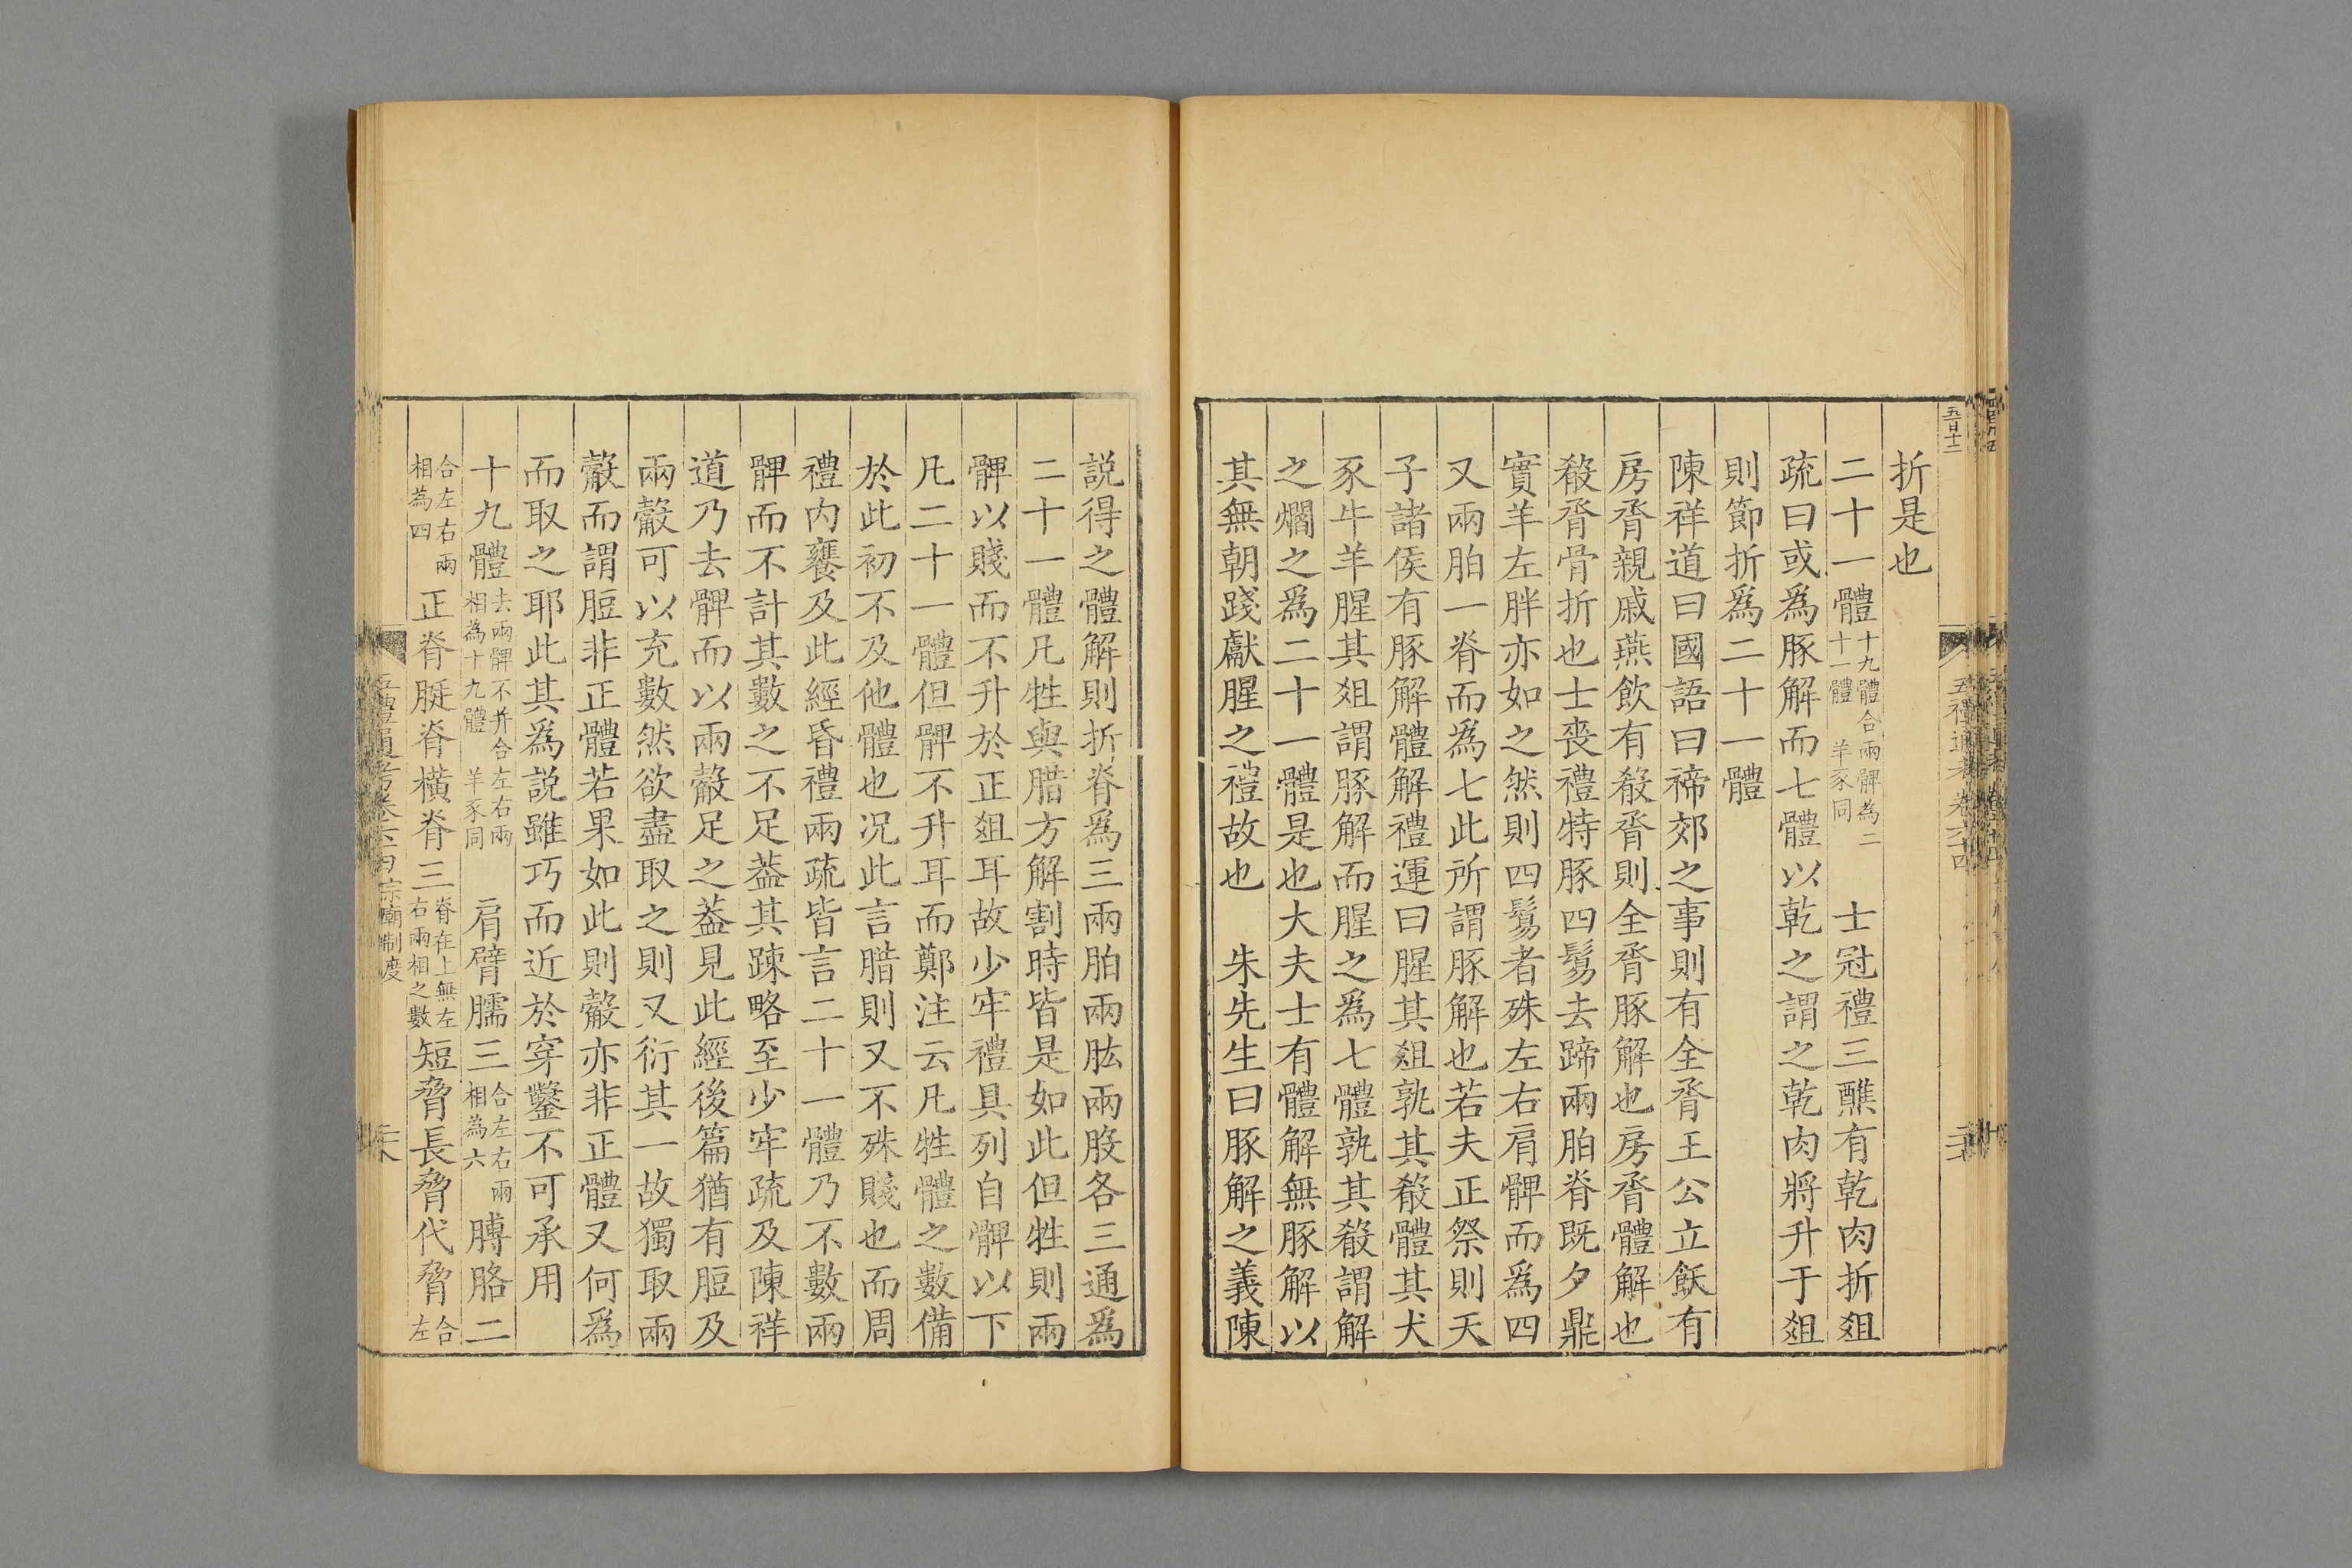 折是也
二十一體十九體合兩髀為二十一體 羊豕同 士冠禮三醮有乾肉折俎
疏曰或爲豚解而七體以乾之謂之乾肉將升于俎
則節折爲二十一體
陳祥道曰國語曰禘郊之事則有全脀王公立飫有
房脀親戚燕飲有殽脀則全脀豚解也房脀體解也
殽脀骨折也士喪禮特豚四鬄去蹄兩胉脊既夕鼎
實羊左胖亦如之然則四鬄者殊左右肩髀而爲四
又兩胉一脊而爲七此所謂豚解也若夫正祭則天
子諸侯有豚解體解禮運曰腥其俎孰其殽體其犬
豕牛羊腥其俎謂豚解而腥之爲七體孰其殽謂解
之爓之爲二十一體是也大夫士有體解無豚解以
其無朝踐獻腥之禮故也 朱先生曰豚解之義陳
說得之體解則折脊爲三兩胉兩肱兩股各三通爲
二十一體凡牲與腊方解割時皆是如此但牲則兩
髀以賤而不升於正俎耳故少牢禮具列自髀以下
凡二十一體但髀不升耳而鄭注云凡牲體之數備
於此初不及他體也况此言腊則又不殊賤也而周
禮內饔及此經昏禮兩疏皆言二十一體乃不數兩
髀而不計其數之不足葢其踈略至少牢疏及陳祥
道乃去髀而以兩觳足之葢見此經後篇猶有脰及
兩觳可以充數然欲盡取之則又衍其一故獨取兩
觳而謂脰非正體若果如此則觳亦非正體又何爲
而取之耶此其爲說雖巧而近於穿鑿不可承用
十九體去兩髀不并合左右兩相為十九體 羊豕同 肩臂臑三合左右兩相為六 膊胳二
合左右兩相為四 正脊脡脊橫脊三脊在上無左右兩相之數 短脅長脅代脅合左
五百十二
五禮通考卷六十四
五禮通考卷六十四宗廟制度